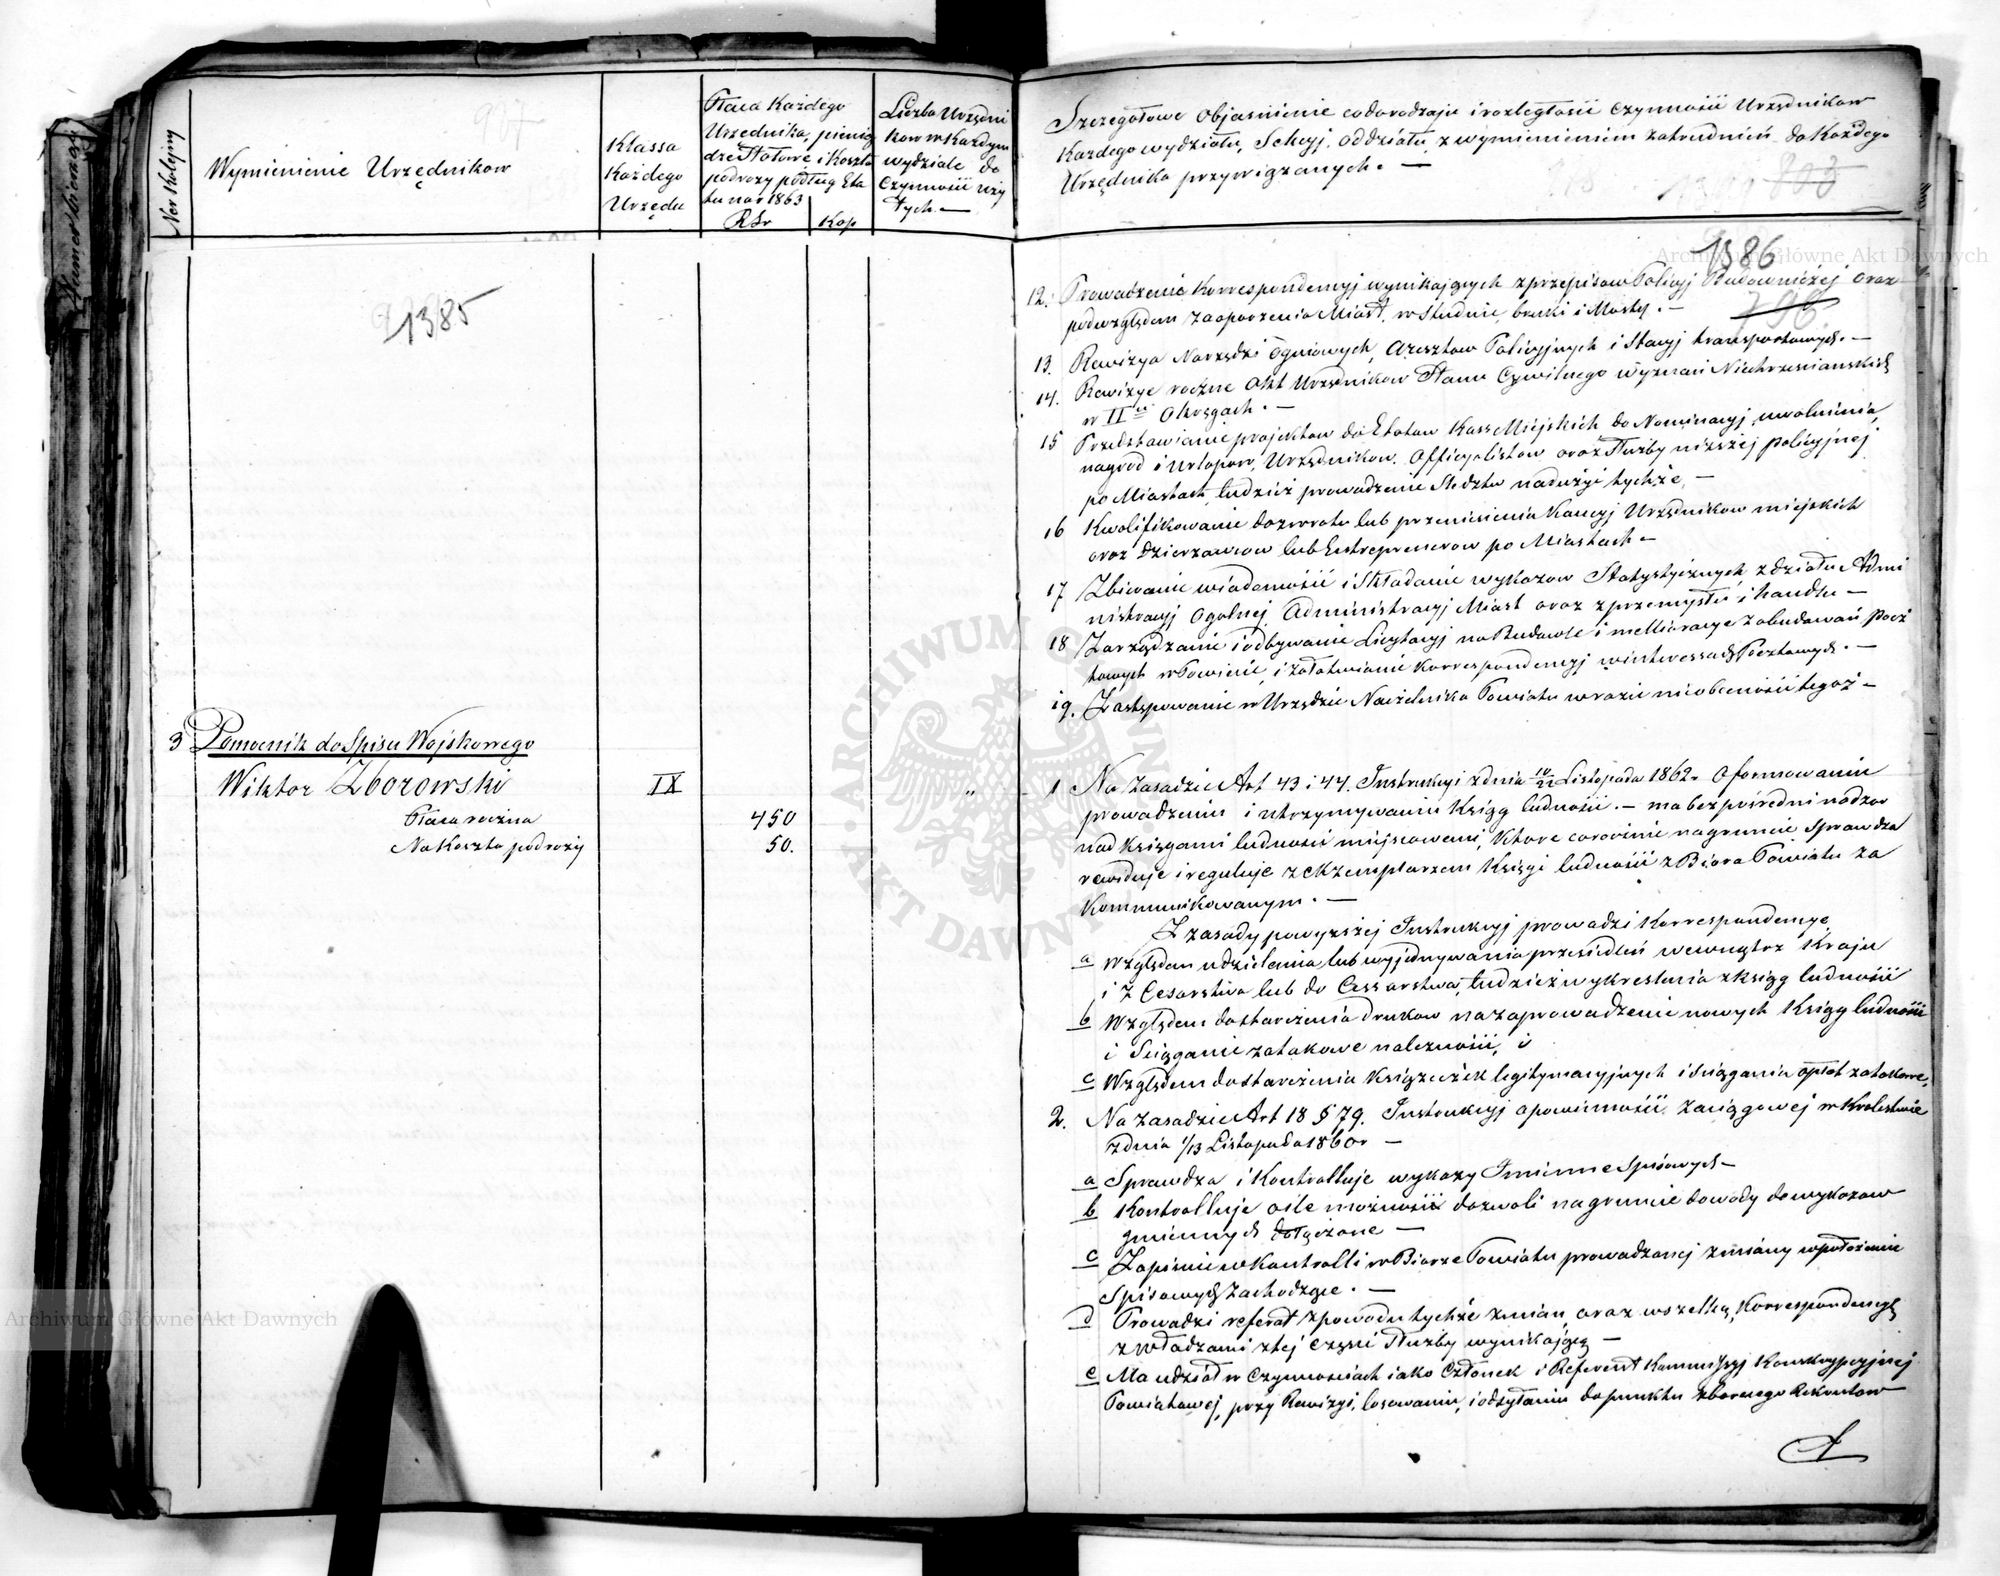 Ner Kolejny
Wymienienie Urzędnikow
Klassa
Każdego
Urzędu
Płaca Każdego
Urzednika, pienią
dze Stołowe i Koszta
podrozy podług Eta
tu na r 1863
RSr
Kop
Liczba Urzędni
kow w Każdym
wydziale do
Czynności uży
tych. —
1385
3 Pomocnik do Spisu Wojskowego
Wiktor Zborowski IX "
Płaca roczna 450
Na Koszta podroży 50.
Szczegołowe Objasnienie co do rodzaju i rozległości Czynności Urzędnikow
Każdego wydziału, Sekcyj, Oddziału, z wymienieniem zatrudnień do Każdego
Urzędnika przywiązanych. —
803
1386
796
12. Prowadzenie Korrespondencyj wynikających z przepisow Policyj Budowniczej oraz
pod względem zaopatrzenia Miast, w Studnie, bruki i Mosty. —
13. Rewizya Narzędzi Ogniowych, Aresztow Policyjnych i Stacyj transportowych. —
14. Rewizye roczne Akt Urzędnikow Stanu Cywilnego wyznań Niechrzescianskich
w II Okręgach. —
15 Przedstawianie projektow do Etatow Kass Miejskich do Nominacyj, uwolnienia,
nagrod i urlopow, Urzędnikow, Officyalistow oraz Służby niższej policyjnej
po Miastach, tudzież prowadzenie Sledztw nadużyć tychże, —
16 Kwalifikowanie do zwrotu lub przeniesienia Kaucyj Urzędnikow miejskich
oraz dzierzawcow lub Entreprenerow po Miastach —
17 Zbieranie wiadomości i Składanie wykazow Statystycznych z działu Admi
nistracyj Ogolnej, Administracyj Miast oraz z przemysłu i handlu —
18 Zarządzanie i odbywanie Licytacyj na Budowle i melioracye zabudowań pocz
towych w Powiecie, i załatwianie Korrespondencyj w interessach Pocztowych. —
19. Zastępowanie w Urzędzie Naczelnika Powiatu w razie nieobecności tegoż —
1 Na Zasadzie Art 43 i 44. Instrukcyi z dnia 10/22 Listopada 1862r o formowaniu
prowadzeniu i utrzymywaniu Ksiąg ludności. — ma bezpośredni nadzor
nad księgami ludności miejscowemi, Które corocznie na gruncie Sprawdza
rewiduje i reguluje z ekzemplarzem Księgi ludności z Biora Powiatu za
Kommunikowanym. —
Z zasady powyższej Instrukcyj prowadzi Korrespondencye
a Względem udzielania lub wyjednywania przesiedleń wewnątrz Kraju
i z Cesarstwa lub do Cessarstwa, tudzież wykreslenia z ksiąg ludności
b Względem dostarczenia drukow na zaprowadzenie nowych Ksiąg ludności
i Sciąganie za takowe należności, i
c Względem dostarczenia książeczek legitymacyjnych i sciągania opłat za takowe,
2. Na zasadzie Art 18 § 79. Instrukcyj o powinności zaciągowej w Krolestwie
z dnia 1/13 Listopada 1860r —
a Sprawdza i Kontrolluje wykazy Imienne Spisowych —
b Kontrolluje o ile możność dozwoli na gruncie dowody do wykazow
gminnych dołączone —
c Zapisuie w Kontrolli w Biorze Powiatu prowadzonej zmiany w położenie
Spisowych Zachodzące. —
d Prowadzi referat z powodu tychże zmian, oraz wszelką Korrespondencyę
z władzami z tej części Służby wynikającą —
e Ma udział w Czynnościach jako Członek i Referent Kommissyj Konskrypcyjnej
Powiatowej, przy Rewizyi, losowaniu, i odsyłaniu do punktu zbornego Rekrutow
Archiwum Główne Akt Dawnych
Archiwum Główne Akt Dawnych